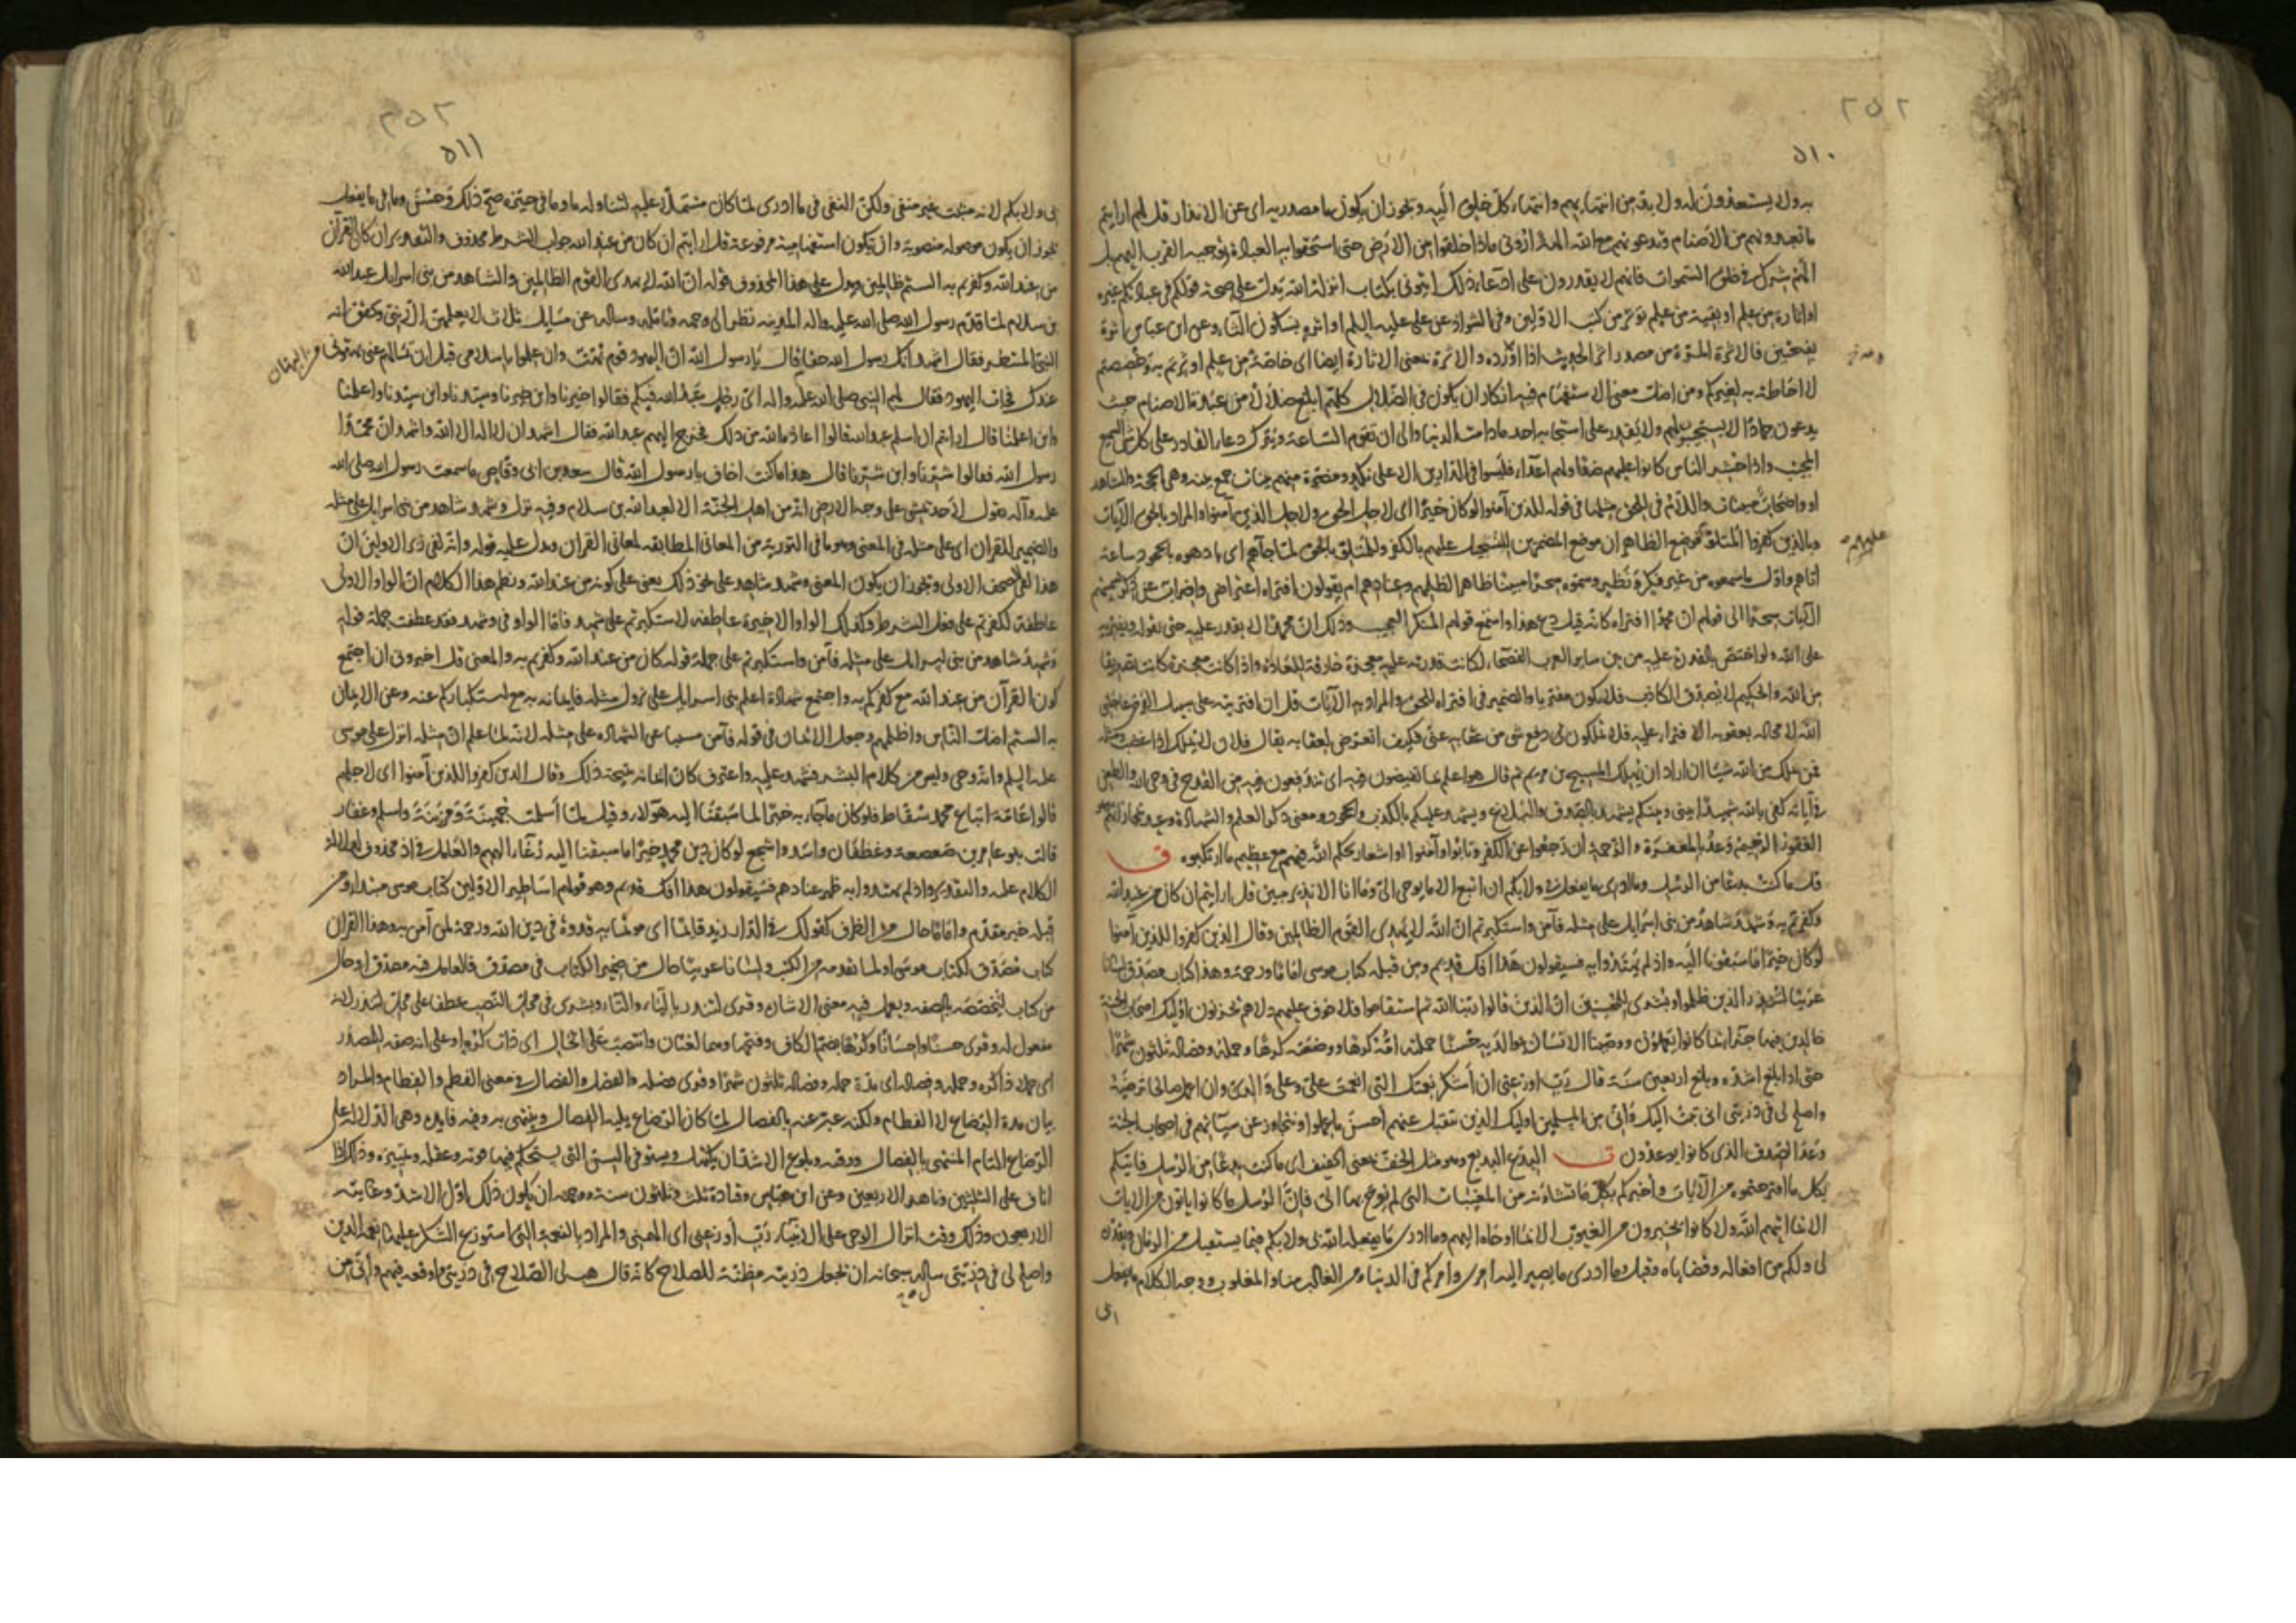 ٢٥٢
٥١٠
به ولا يستعدون له ولا بد من انتهائهم وانتهاء كل خلق اليه ويجوز ان يكون ما مصدرية اى عن الانذار قل لهم ارايتم
ما تعبدونهم من الاصنام وتدعونهم مع الله الها ارونى ماذا خلقوا من الارض حتى استحقوا به العبادة وتوجيه القرب اليهم بل
ألهم شرك فى خلق السموات فانهم لا يقدرون على ادعاء ذلك ايتونى بكتاب انزله الله يدل على صحة قولكم فى عبادتكم غيره
او اثارة من علم او بقية من علم يؤثر من كتب الاولين وفى الشواذ عن على عليه السلم او اثرة بسكون الثاء وعن ابن عباس أثرة
بفتحتين فالاثرة المرة من مصدر اثر الحديث اذا اورده والاثرة بمعنى الاثارة ايضا اى خاصة من علم اوثرتم به وخصصتم
لا احاطة به لغيركم ومن اضل معنى الاستفهام فيه انكار ان يكون فى الضلال كلهم ابلغ ضلالا من عبدة الاصنام حيث
يدعون جمادا لا يستجيب لهم ولا يقدر على استجابة احد ما دامت الدنيا والى ان تقوم الساعة ويترك دعاء القادر على كل شئ السميع
المجيب واذا حشر الناس كانوا عليهم ضدا ولهم اعداء فليسوا فى الدارين الا على نكد ومضرة منهم بينات جمع بينة وهى الحجة والشاهد
او واضحات مبينات واللام فى للحق مثلها فى قوله للذين آمنوا لو كان خيرا اى لاجل الحق ولاجل الذين آمنوا والمراد بالحق الآيات
وبالذين كفروا المتلو عليهم فوضع الظاهران موضع المضمرين للتسجيل عليهم بالكفر وللمتلو بالحق لما جآءهم اى بادهوه بالجحود ساعة
اتاهم واول ما سمعوه من غير فكرة ونظر وسموه سحرا مبينا ظاهرا لظلمهم وعنادهم ام يقولون افتراه اعتراض واضراب عن ذكر تسميتهم
الآيات سحرا الى قولهم ان محمدا افتراه كانه قيل دع هذا واسمع قولهم المنكر العجيب وذلك ان محمدا لا يقدر عليه حتى يقوله ويفتريه
على الله ولو اختص بالقدرة عليه من بين ساير العرب الفصحاء لكانت قدرته عليه معجزة خارقة للعادة واذا كانت معجزة كانت تصديقا
من الله والحكيم لا يصدق الكاذب فلا يكون مفتريا والضمير فى افتراه للحق والمراد به الآيات قل ان افتريته على سبيل الفرض عاجلنى
الله لا محالة بعقوبة الافتراء عليه فلا تملكون لى دفع شئ من عقابه عنى فكيف اتعرض لعقابه يقال فلان لا يملك اذا غضب ومثله
فمن يملك من الله شيئا ان اراد ان يهلك المسيح بن مريم ثم قال هو اعلم بما تفيضون فيه اى تندفعون فيه من القدح فى وحى الله والطعن
فى آياته كفى بالله شهيدا بينى وبينكم يشهد بالصدق والبلاغ ويشهد عليكم بالكذب والجحود ومعنى ذكر العلم والشهادة وعيد بجزائهم
الغفور الرحيم وعد بالمغفرة والرحمة ان رجعوا عن الكفر وتابوا وآمنوا او اشعار بحلم الله عنهم مع عظيم ما ارتكبوه ق
قل ما كنت بدعا من الرسل وما ادرى ما يفعل بى ولا بكم ان اتبع الا ما يوحى الىّ وما انا الا نذير مبين قل ارايتم ان كان من عند الله
وكفرتم به وشهد شاهد من بنى اسرايل على مثله فآمن واستكبرتم ان الله لا يهدى القوم الظالمين وقال الذين كفروا للذين آمنوا
لو كان خيرا ما سبقونا اليه واذ لم يهتدوا به فسيقولون هذا افك قديم ومن قبله كتاب موسى اماما ورحمة وهذا كتاب مصدق لسانا
عربيا لتنذر الذين ظلموا وبشرى للمحسنين ان الذين قالوا ربنا الله ثم استقاموا فلا خوف عليهم ولا هم يحزنون اوليك اصحاب الجنة
خالدين فيها جزاء بما كانوا يعملون ووصينا الانسان بوالديه حسنا حملته امه كرها ووضعته كرها وحمله وفصاله ثلثون شهرا
حتى اذا بلغ اشده وبلغ اربعين سنة قال رب اوزعنى ان أشكر نعمتك التى انعمت علىّ وعلى والدىّ وان اعمل صالحا ترضيه
واصلح لى فى ذريتى انى تبت اليك وانى من المسلمين اوليك الذين نتقبل عنهم أحسن ما عملوا ونتجاوز عن سيآتهم فى اصحاب الجنة
وعد الصدق الذى كانوا يوعدون ت البدع البديع وهو مثل الخف بمعنى الخفيف اى ما كنت بدعا من الرسل فآتيكم
بكل ما اقترحتموه من الآيات وأخبركم بكل ما تسألون من المغيبات التى لم يوح بها الىّ فإن الرسل ما كانوا ياتون من الايات
الا بما اتيهم الله ولا كانوا يخبرون من الغيوب الا بما اوحاه اليهم وما ادرى ما يفعله الله بى ولا بكم فيما يستقبل من الزمان ويقدره
لى ولكم من افعاله وقضاياه وقيل وما ادرى ما يصير اليه امرى وامركم فى الدنيا ومن الغالب منا والمغلوب ووجه الكلام ما يفعل
بى
عليهم
٢٥٣
٥١١
بى ولا بكم لانه مثبت غير منفى ولكن النفى فى ما ادرى لما كان مشتملا عليه لتناوله ما وما فى حيزه صح ذلك وحسن وما فى ما يفعل
يجوز ان يكون موصولة منصوبة وان يكون استفهامية مرفوعة قل ارايتم ان كان من عند الله جواب الشرط محذوف والتقدير ان كان القرآن
من عند الله وكفرتم به ألستم ظالمين ويدل على هذا المحذوف قوله ان الله لا يهدى القوم الظالمين والشاهد من بنى اسرايل عبد الله
بن سلام لما قدم رسول الله صلى الله عليه وآله المدينة نظر الى وجهه وتامله وساله عن مسايل ثلاث لا يعلمهن الا نبى وتحقق انه
النبى المنتظر فقال اشهد انك رسول الله حقا وقال يا رسول الله ان اليهود قوم بهت وان علموا باسلامى قبل ان تسالهم عنى بهتونى
عندك فجاءت اليهود فقال لهم النبى صلى الله عليه وآله اى رجل عبد الله فيكم فقالوا خيرنا وابن خيرنا وسيدنا وابن سيدنا واعلمنا
وابن اعلمنا قال ارايتم ان اسلم عبد الله قالوا اعاذه الله من ذلك فخرج اليهم عبد الله فقال اشهد ان لا اله الا الله واشهد ان محمدا
رسول الله فقالوا شرنا وابن شرنا قال هذا ما كنت اخاف يا رسول الله قال سعد بن ابى وقاص ما سمعت رسول الله صلى الله
عليه وآله يقول لاحد يمشى على وجه الارض انه من اهل الجنة الا لعبد الله بن سلام وفيه نزل وشهد شاهد من بنى اسرايل على مثله
والضمير للقرآن اى على مثله فى المعنى وهو ما فى التورية من المعانى المطابقة لمعانى القرآن ويدل عليه قوله وانه لفى زبر الاولين ان
هذا لفى الصحف الاولى ويجوز ان يكون المعنى وشهد شاهد على نحو ذلك يعنى على كونه من عند الله ونظم هذا الكلام ان الواو الاولى
عاطفة لكفرتم على فعل الشرط وكذلك الواو الاخيرة عاطفة لاستكبرتم على شهد فاما الواو فى وشهد فقد عطفت جملة قوله
وشهد شاهد من بنى اسرايل على مثله فآمن واستكبرتم على جملة قوله كان من عند الله وكفرتم به والمعنى قل اخبرونى ان اجتمع
كون القرآن من عند الله مع كفركم به واجتمع شهادة اعلم بنى اسرايل على نزول مثله فايمانه به مع استكباركم عنه وعن الايمان
به الستم اضل الناس واظلمهم وجعل الايمان فى قوله فآمن مسببا عن الشهادة على مثله لانه لما علم ان مثله انزل على موسى
عليه السلم وانه وحى وليس من كلام البشر فشهد عليه واعترف كان ايمانه نتيجة ذلك وقال الذين كفروا للذين آمنوا اى لاجلهم
قالوا عامة اتباع محمد سقاط فلو كان ما جآء به خيرا لما سبقنا اليه هولاء وقيل لما أسلمت جهينة ومزينة واسلم وغفار
قالت بنو عامر بن صعصعة وغطفان واسد واشجع لو كان دين محمد خيرا ما سبقنا اليه رعاء البهم والعامل فى اذ محذوف لدلالة
الكلام عليه والتقدير واذ لم يهتدوا به ظهر عنادهم فسيقولون هذا افك قديم وهو قولهم اساطير الاولين كتاب موسى مبتدا ومن
قبله خبر مقدم واماما حال من الظرف كقولك فى الدار زيد قائما اى موتما به قدوة فى دين الله ورحمة لمن آمن به وهذا القرآن
كتاب مصدق لكتاب موسى او لما تقدمه من الكتب ولسانا عربيا حال من ضمير الكتاب فى مصدق فالعامل فيه مصدق او حال
من كتاب لتخصصه بالصفة ويعمل فيه معنى الاشارة وقرى لتنذر بالياء والتاء وبشرى فى محل النصب عطفا على محل لتنذر لانه
مفعول له وقرى حسنا واحسانا وكرها بضم الكاف وفتحها وهما لغتان وانتصب على الحال اى ذات كره او على انه صفة للمصدر
اى حملا ذا كره وحمله وفصاله اى مدة حمله وفصاله ثلثون شهرا وقرى وفصله والفصل والفصال فى معنى الفطم والفطام والمراد
بيان مدة الرضاع لا الفطام ولكنه عبر عنه بالفصال لما كان الرضاع يليه الفصال وينتهى به وفيه فايدة وهى الدلالة على
الرضاع التام المنتهى بالفصال ووقته وبلوغ الاشد ان يكتهل ويستوفى السن التى يستحكم فيها قوته وعقله وتمييزه وذلك اذا
اناف على الثلثين وناهز الاربعين وعن ابن عباس وقتادة ثلث وثلثون سنة ووجهه ان يكون ذلك اول الاشد وغايته
الاربعون وذلك وقت انزال الوحى على الانبياء رب أوزعنى اى الهمنى والمراد بالنعمة التى استوزع الشكر عليها نعمة الدين
واصلح لى فى ذريتى ساله سبحانه ان يجعل ذريته مظنة للصلاح كانه قال هب لى الصلاح فى ذريتى واوقعه فيهم وانى من